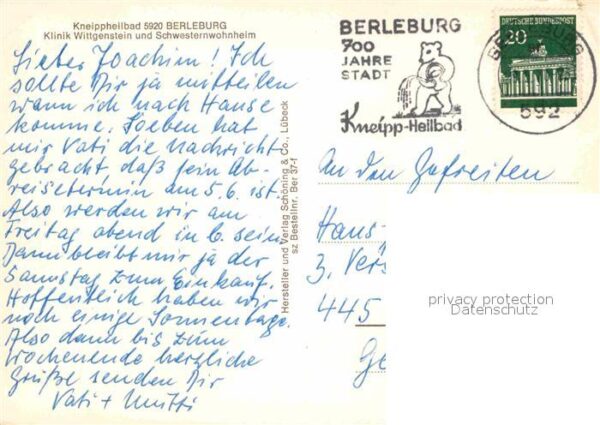 Kneippheilbad 5920 BERLEBURG
Klinik Wittgenstein und Schwesternwohnheim
Lieber Joachim! Ich
sollte Dir ja mitteilen
wann ich nach Hause
komme. Soeben hat
mir Vati die Nachricht
gebracht, daß sein Ab-
reisetermin am 5.6. ist.
Also werden wir am
Freitag abend in G. sein.
Dann bleibt mir ja der
Samstag zum Einkauf.
Hoffentlich haben wir
noch einige Sonnentage.
Also dann bis zum
Wochenende herzliche
Grüße senden Dir
Vati + Mutti
Hersteller und Verlag Schöning & Co., Lübeck
sz Bestellnr. Ber 37-f
BERLEBURG
700
JAHRE
STADT
Kneipp-Heilbad
DEUTSCHE BUNDESPOST
20
BERLEBURG
592
An den Gefreiten
Hans-
3. Vers
445
Ge
privacy protection
Datenschutz